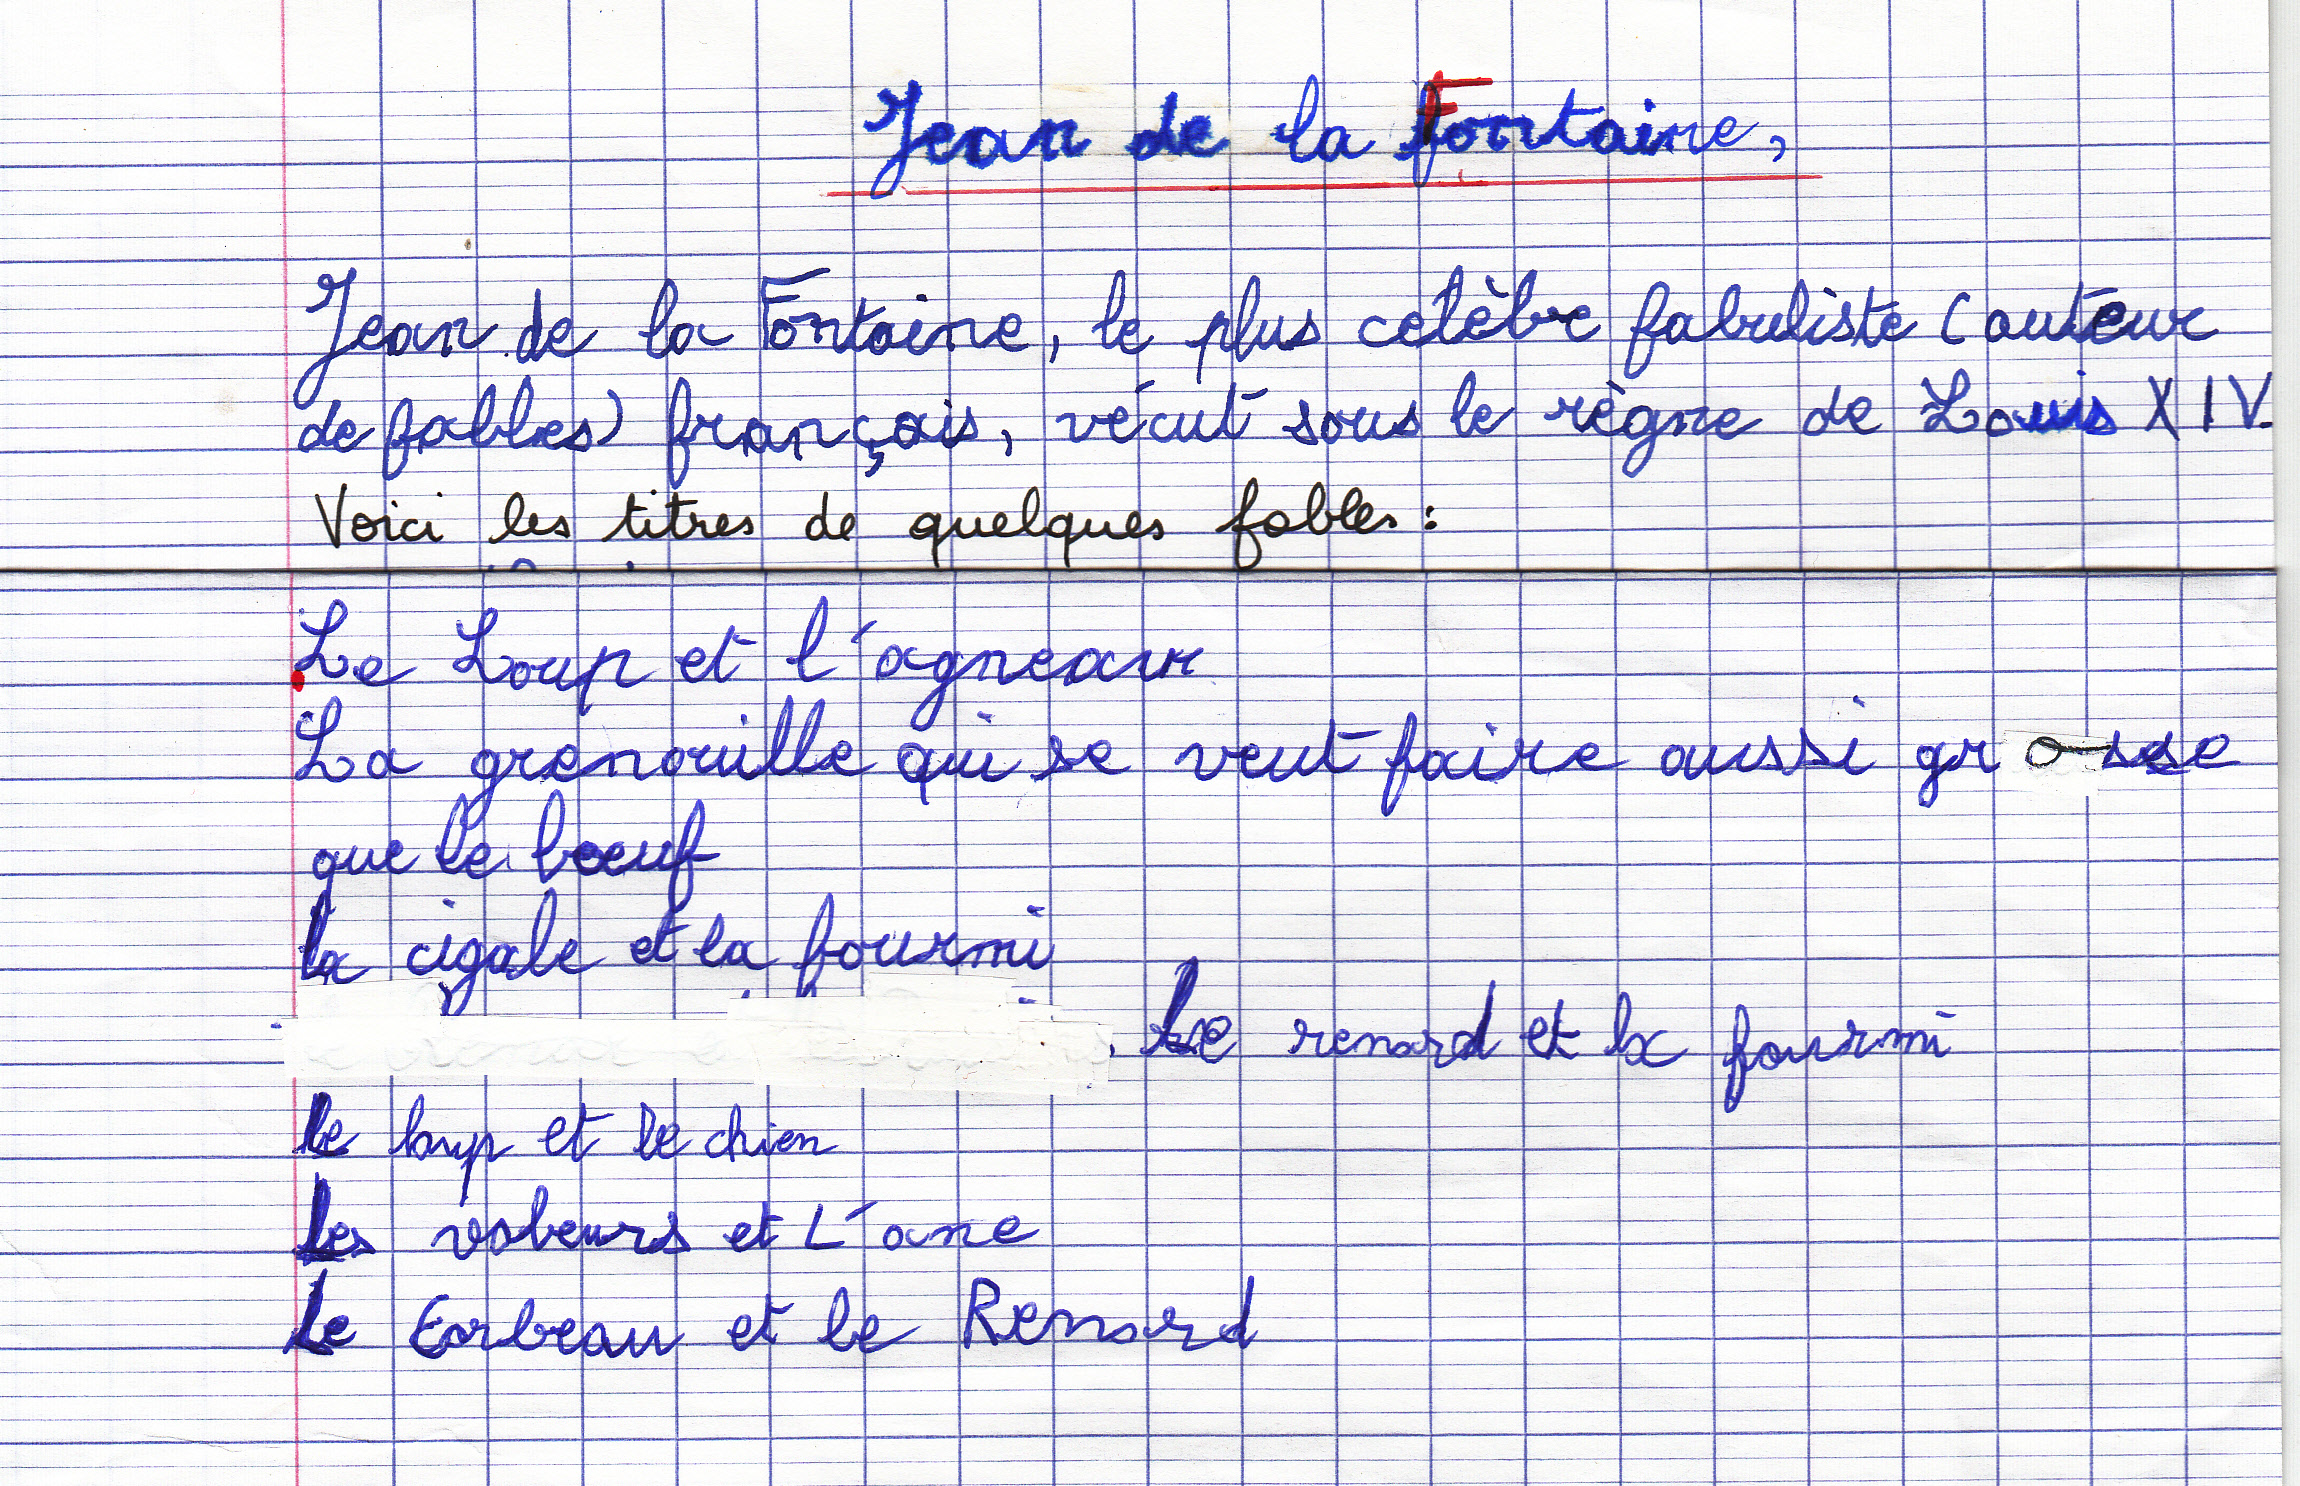 Jean de la Fontaine,
Jean de la Fontaine, le plus celèbre fabuliste (auteur
de fables) français, vécut sous le règne de Louis XIV.
Voici les titres de quelques fables:
Le Loup et l'agneau
La grenouille qui se veut faire aussi grosse
que le boeuf
la cigale et la fourmi
. Le renard et la fourmi
le loup et le chien
Les voleurs et L'ane
Le Corbeau et le Renard